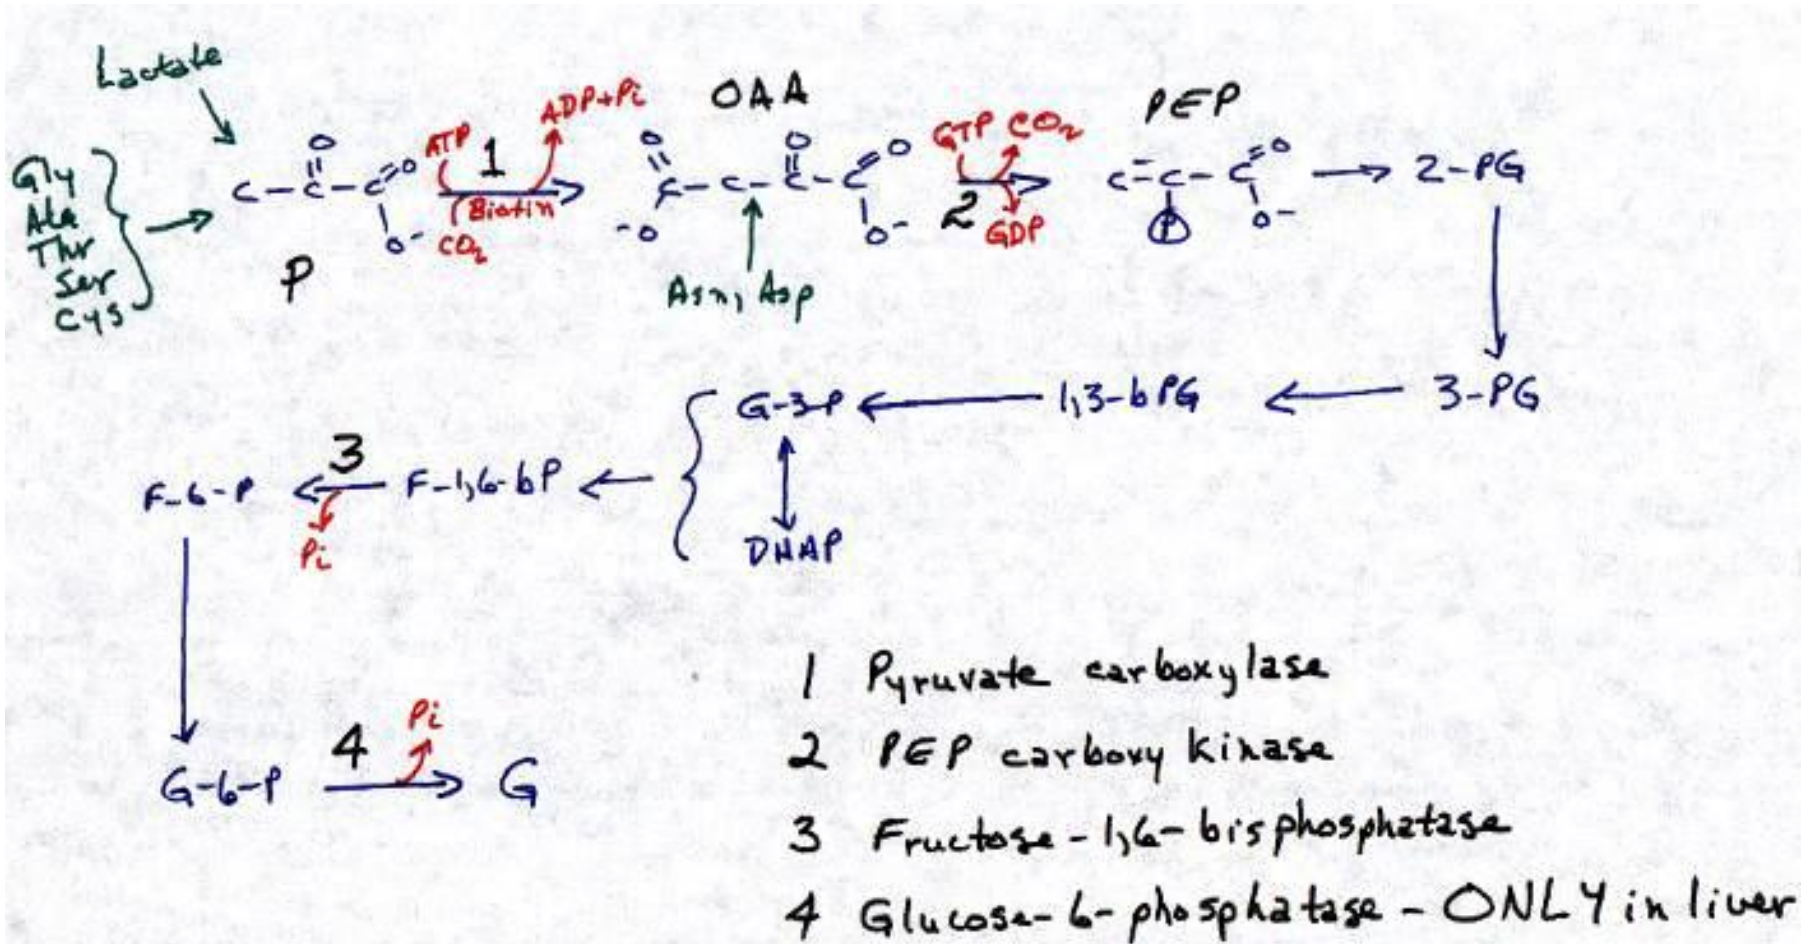 Lactate
Gly
Ala
Thr
Ser
Cys
C-C-C
O
O
O-
P
ATP
1
ADP+Pi
Biotin
CO2
OAA
O
C-C-C-C
O
O
-O
O-
Asn, Asp
GTP CO2
2
GDP
PEP
C=C-C
O
P
O-
2-PG
3-PG
1,3-bPG
G-3-P
DHAP
F-1,6-bP
3
Pi
F-6-P
G-6-P
4
Pi
G
1 Pyruvate carboxylase
2 PEP carboxy kinase
3 Fructose-1,6-bisphosphatase
4 Glucose-6-phosphatase - ONLY in liver